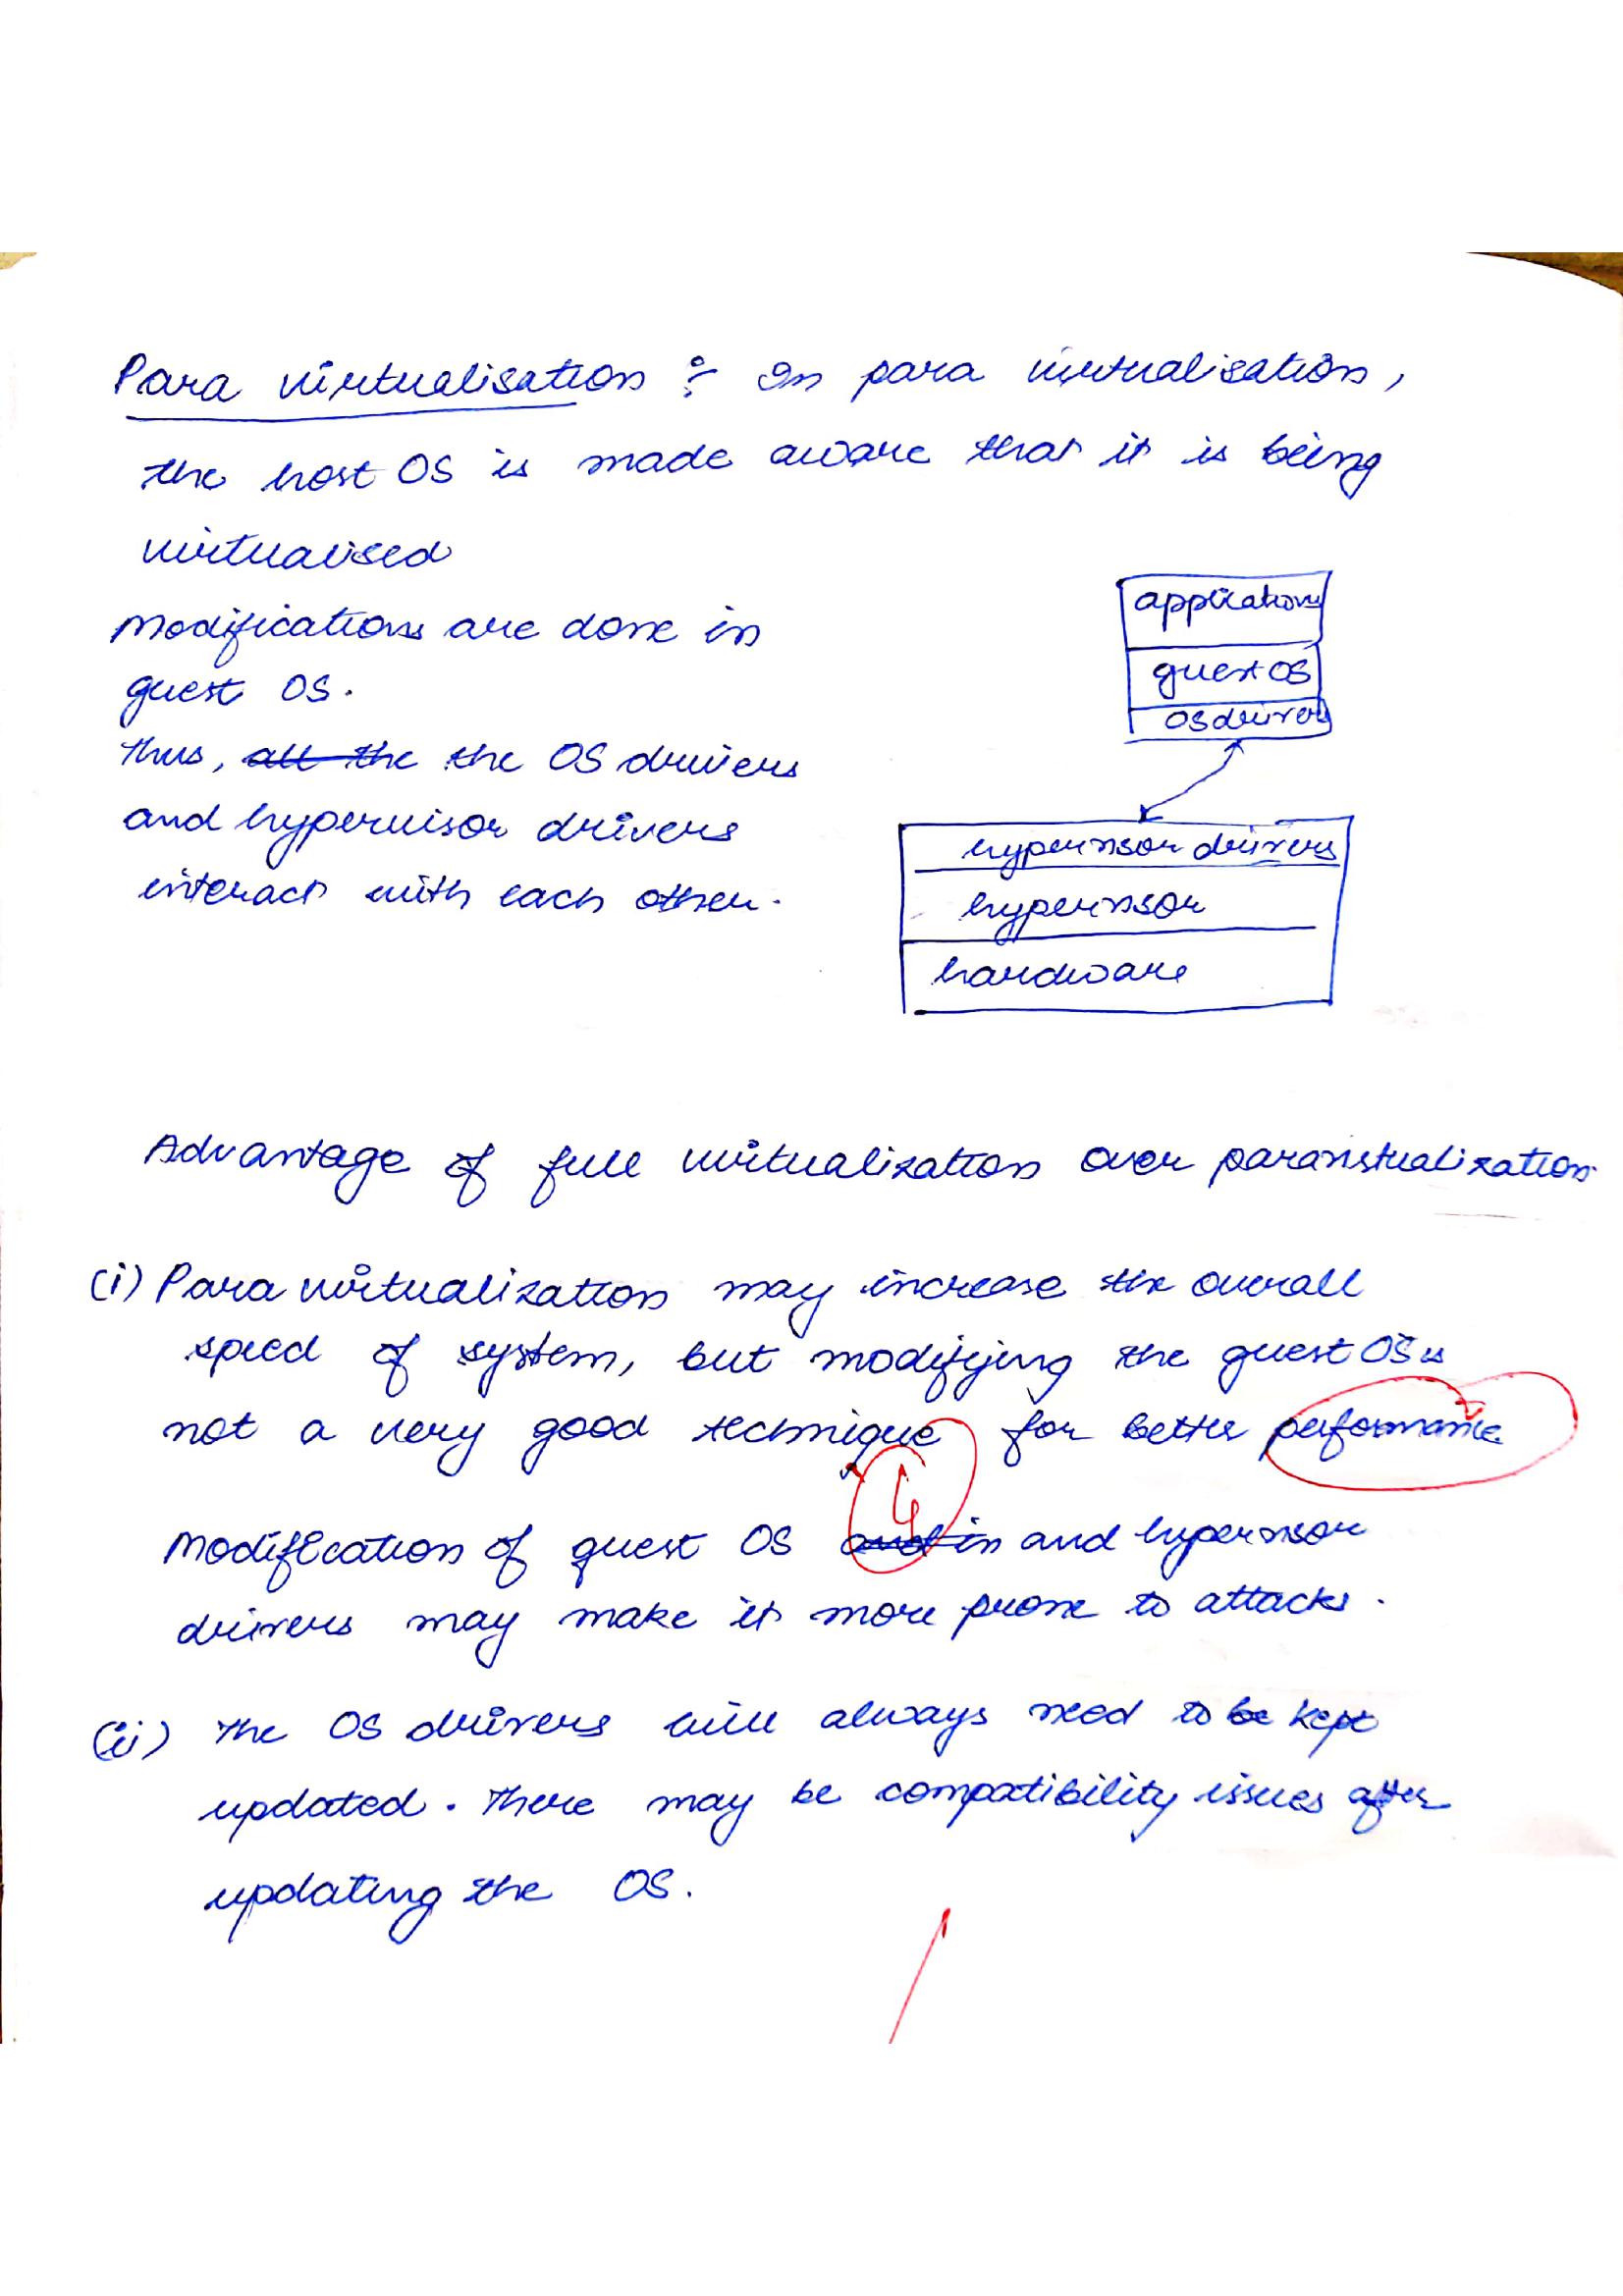 Para virtualisation :- In para virtualisation,
the host OS is made aware that it is being
virtualised
Modifications are done in
guest OS.
Thus, all the the OS drivers
and hypervisor drivers
interact with each other.
applications
guest OS
OS driver
hypervisor drivers
hypervisor
hardware
Advantage of full virtualization over paravirtualization.
(i) Para virtualization may increase the overall
speed of system, but modifying the guest OS is
not a very good technique for better performance
4
Modification of guest OS and in and hypervisor
drivers may make it more prone to attacks.
(ii) The OS drivers will always need to be kept
updated. There may be compatibility issues after
updating the OS.